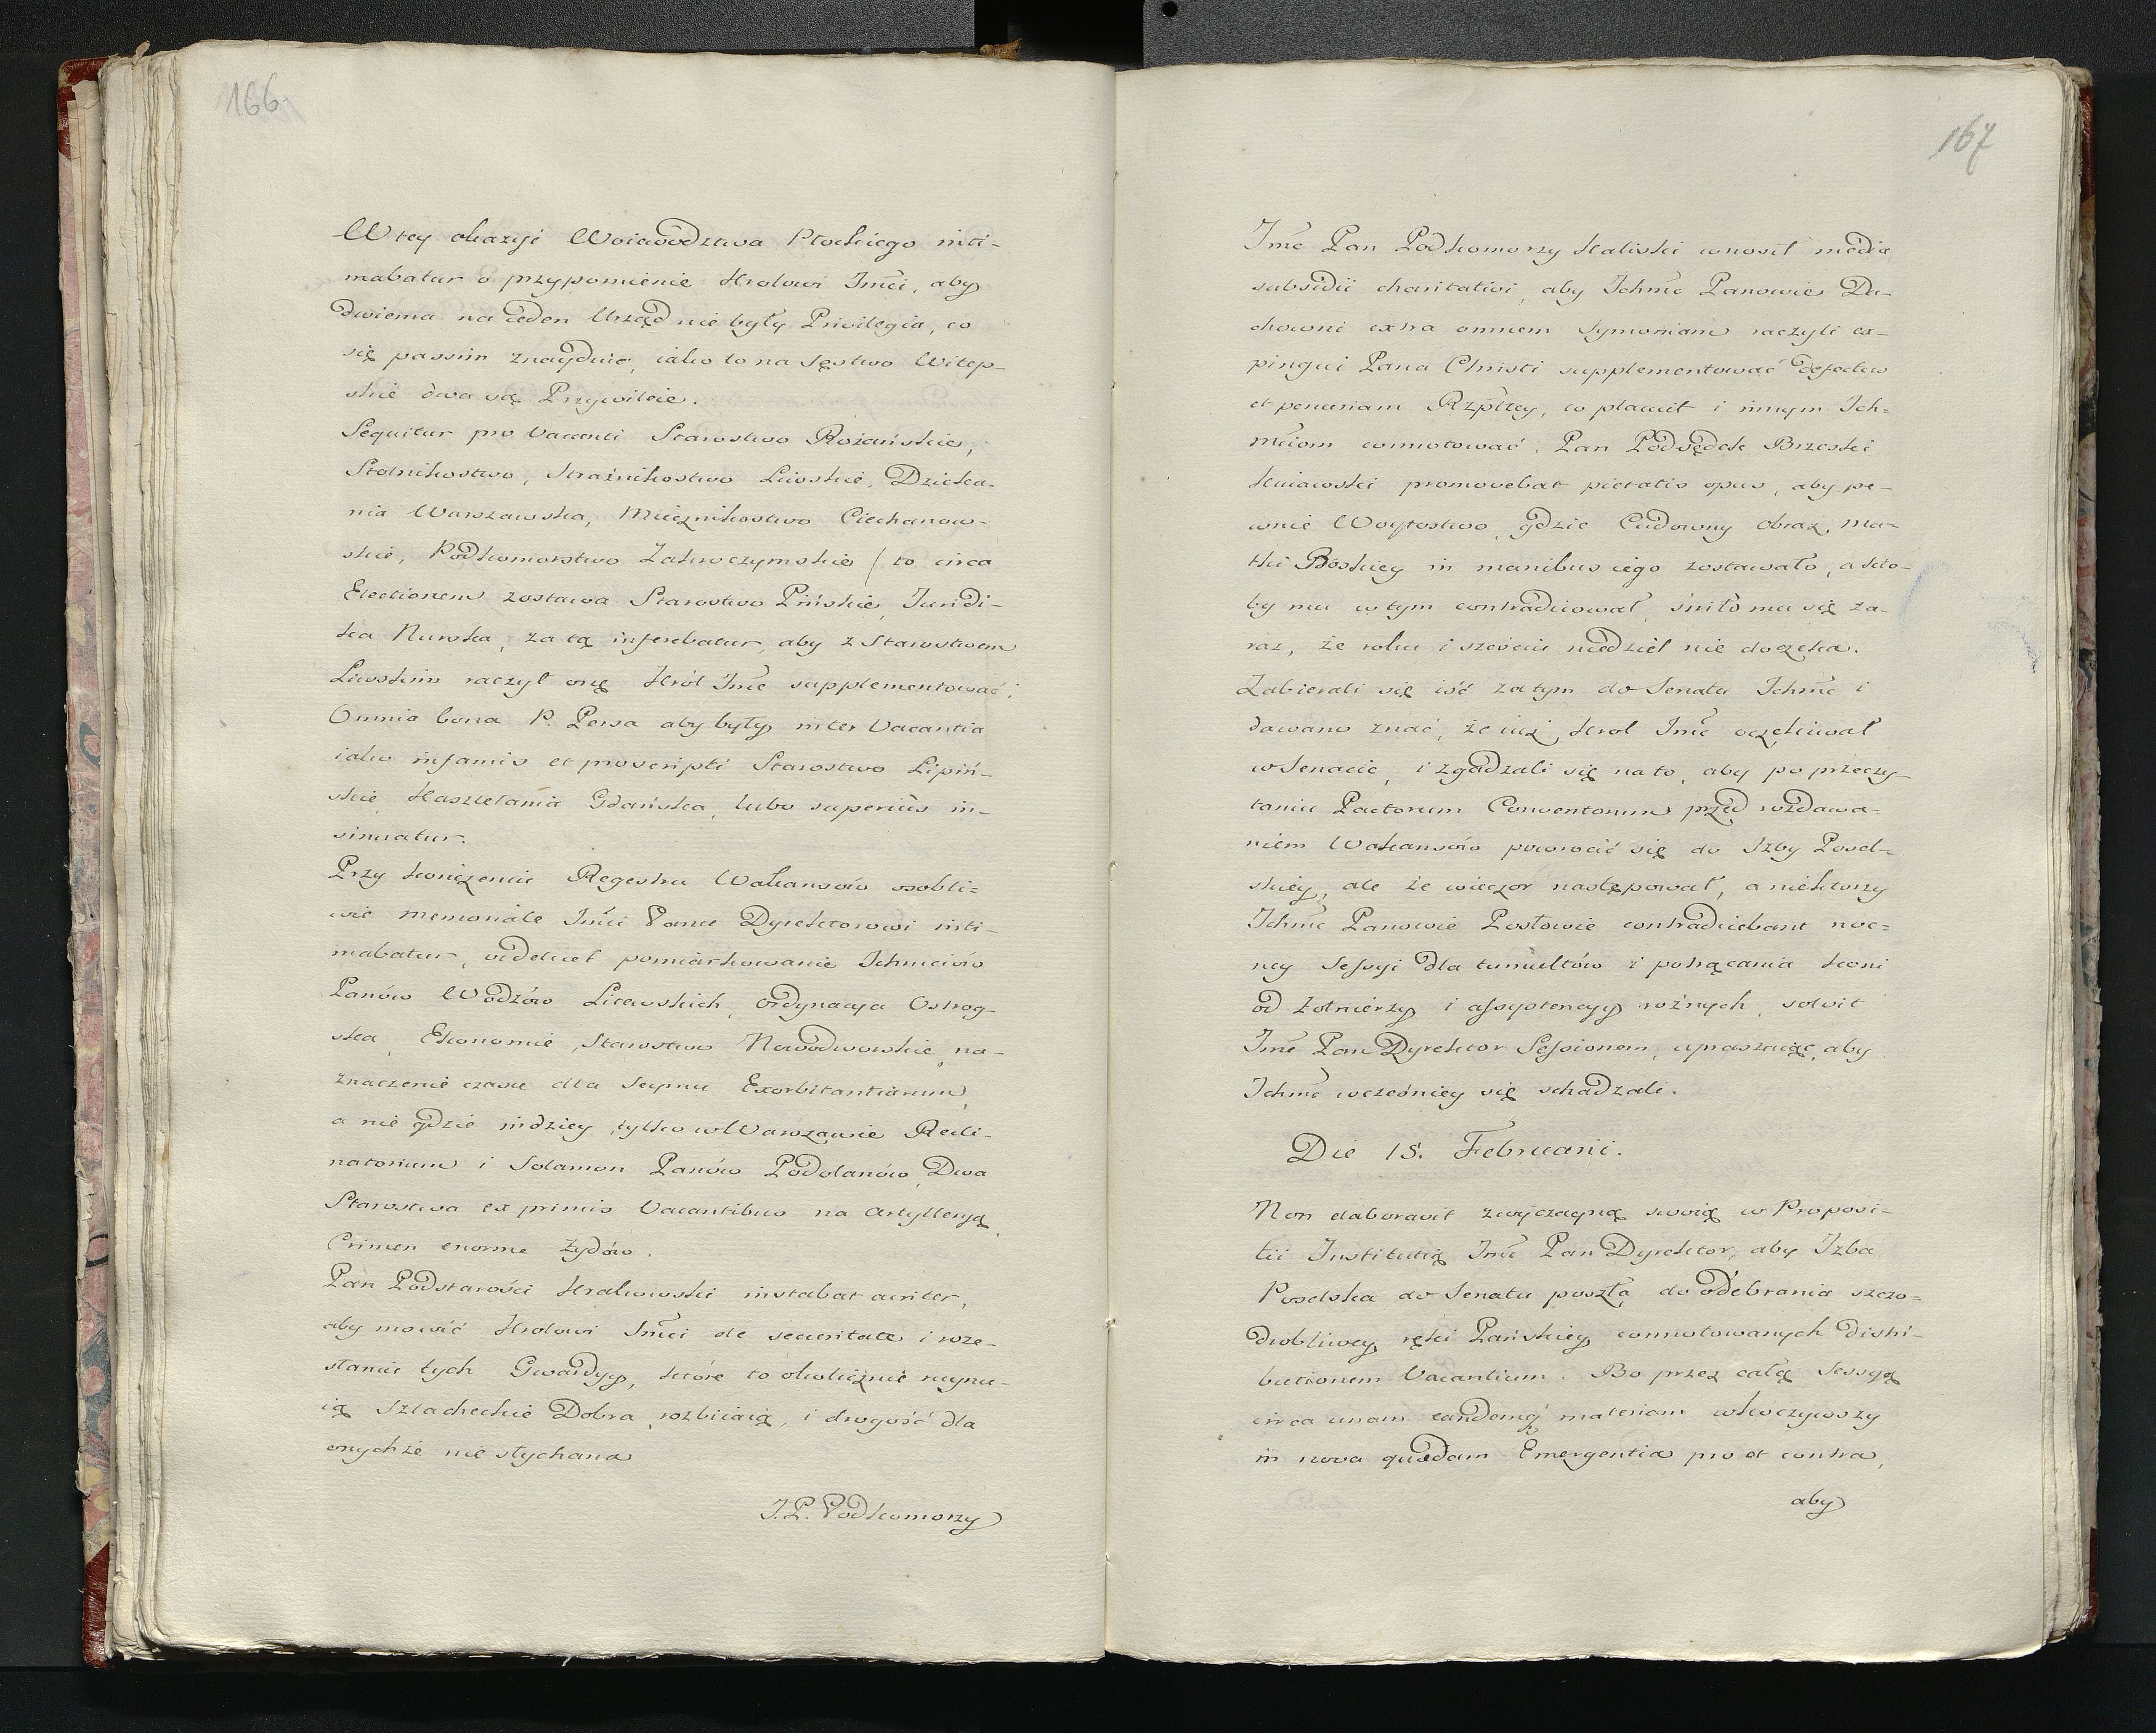 166.
W tey okazyi Woiewodztwa Płockiego inti-
mabatur o przypomienie Krolowi Jmci, aby
dwiema na ieden Urząd nie były Privilegia, co
się passim znayduie, iako to na Sęstwo Witep-
skie dwa są Przywileie.
Sequitur pro vacanti Starostwo Rożańskie,
Stolnikostwo, Strażnikostwo Liwskie, Dzieka-
nia Warszawska, Miecznikostwo Ciechanow-
skie, Podkomorstwo Zakroczymskie / to circa
Electionem zostawa Starostwo Pińskie, Juridi-
ka Nurska, za tą inferebatur, aby z Starostwem
Liwskim raczył onę Król Jmć supplementować;
Omnia bona P. Persa aby były inter Vacantia
iako infamis et proscripti Starostwo Lipiń-
skie, Kasztelania Gdańska, lubo superiùs in-
sinuatur.
Przy kończeniu Regestru Wakansów osobli-
wie memoriale Jmci Panu Dyrektorowi inti-
mabatur, videlicet pomiarkowanie Ichmciów
Panów Wodzów Litewskich, Ordynacya Ostrog-
ska, Ekonomie, Starostwo Nowodworskie, na-
znaczenie czasu dla Seymu Exorbitantiarum,
a nie gdzie indziey, tylko w Warszawie Recli-
natorium i Solamen Panów Podolanów, Dwa
Starostwa ex primis Vacantibus na Artylleryą,
Crimen enorme Żydów.
Pan Podstarości Krakowski instabat acriter,
aby mowić Krolowi Jmci de securitate i roze-
słaniu tych Gwardyy, które to okolicznie ruynu-
ią Szlacheckie Dobra, rozbiiaią, i drogość dla
onychże nie słychana
J.P. Podkomorzy
167
Jmć Pan Podkomorzy Kaliski wnosił media
subsidii charitativi, aby Ichmć Panowie Du-
chowni extra omnem Symoniam raczyli ex
pingui Pana Christi supplementować defectus
et penuriam Rzpltey, co placuit i innym Ich-
mciom connotować. Pan Podsędek Brzeski
Kuiawski promovebat pietatis opus, aby pe-
wnie Woytostwo, gdzie Cudowny Obraz Ma-
tki Boskiey in manibus iego zostawało, a kto-
by mu w tym contradicował, śniło mu się za-
raz, że roku i sześciu niedziel nie doczeka.
Zabierali się iść zatym do Senatu Ichmć i
dawano znać, że iuż Krol Jmć oczekiwał
w Senacie, i zgadzali się na to, aby po przeczy-
taniu Pactorum Conventorum przed rozdawa-
niem Wakansów powrocić się do Izby Posel-
skiey, ale że wieczor następował, a niektorzy
Ichmć Panowie Posłowie contradicebant noc-
ney Sessyi dla tumultów i potrącania koni
od żołnierzy i assystencyy rożnych, solvit
Jmć Pan Dyrektor Sessionem, upraszaiąc, aby
Ichmć wcześniey się schadzali.
Die 15. Februarii.
Non elaboravit zwyczayną swoią w Proposi-
tii Institutią Jmć Pan Dyrektor, aby Izba
Poselska do Senatu poszła do odebrania szczo-
drobliwey ręki Pańskiey connotowanych distri-
butionem Vacantium. Bo przez całą Sessyą
circa unam eandemq́ materiam wkroczywszy
in nova quædam Emergentia pro et contra,
aby